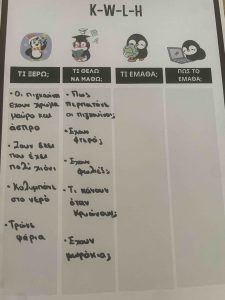 K-W-L-H
ΤΙ ΞΕΡΩ;
ΤΙ ΘΕΛΩ
ΝΑ ΜΑΘΩ;
ΤΙ ΕΜΑΘΑ;
ΠΩΣ ΤΟ
ΕΜΑΘΑ;
• Οι πιγκουίνοι
έχουν χρώμα
μαύρο και
άσπρο
• Ζουν εκεί
που έχει
πολύ χιόνι
• Κολυμπάνε
στο νερό
• Τρώνε
ψάρια
• Πως
περπατάνε
οι πιγκουίνοι;
• Έχουν
φτερά;
• Έχουν
φωλιές;
• Τι κάνουν
όταν
κρυώνουν;
• Έχουν
μωράκια;